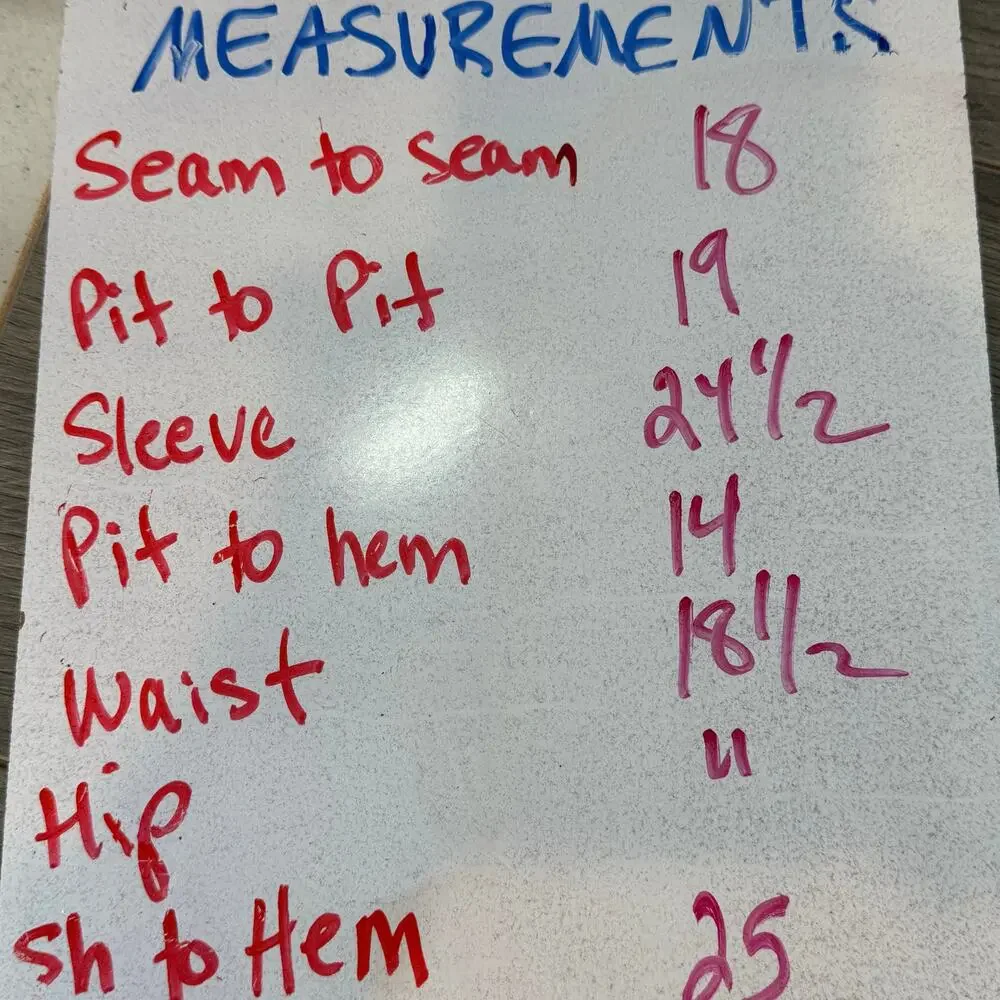 MEASUREMENTS
Seam to Seam 18
Pit to Pit 19
Sleeve 24 1/2
Pit to hem 14
Waist 18 1/2
Hip "
Sh to Hem 25